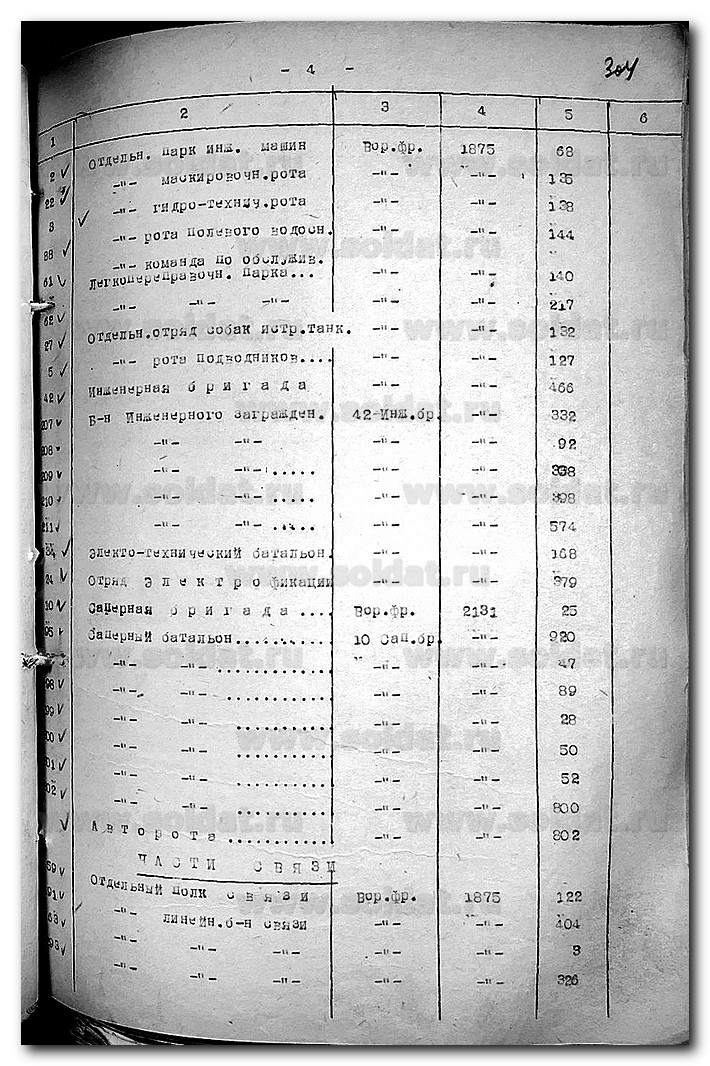 - 4 -
304
1 2 3 4 5 6
2 Отдельн. парк инж. машин Вор.фр. 1875 68
22 -"- маскировочн.рота -"- -"- 135
3 -"- гидро-технич.рота -"- -"- 138
88 -"- рота полевого водосн. -"- -"- 144
-"- команда по обслужив.
61 Легкопереправочн. парка... -"- -"- 140
-"- -"- -"- -"- -"- 217
62 Отдельн.отряд собак истр.танк. -"- -"- 132
27 -"- рота подводников.... -"- -"- 127
5 Инженерная бригада -"- -"- 466
42 Б-н Инженерного заграждeн. 42-Инж.бр. -"- 332
207 -"- -"- -"- -"- 92
208 -"- -"- ..... -"- -"- 338
209 -"- -"- ..... -"- -"- 398
210 -"- -"- ..... -"- -"- 574
211 Электо-технический батальон. -"- -"- 168
34 Отряд Электрофикации -"- -"- 379
24 Саперная бригада .... Вор.фр. 2131 25
10 Саперный батальон........... 10 Сап.бр. -"- 920
95 -"- -"- ............ -"- -"- 47
-"- -"- ........... -"- -"- 89
98 -"- -"- .......... -"- -"- 28
99 -"- -"- .......... -"- -"- 50
00 -"- -"- .......... -"- -"- 52
01 -"- -"- .......... -"- -"- 800
02 Авторота ............ -"- -"- 802
ЧАСТИ СВЯЗИ
59 Отдельный полк связи Вор.фр. 1875 122
91 -"- линейн.б-н связи -"- -"- 404
63 -"- -"- -"- -"- -"- 3
93 -"- -"- -"- -"- -"- 326
www.soldat.ru